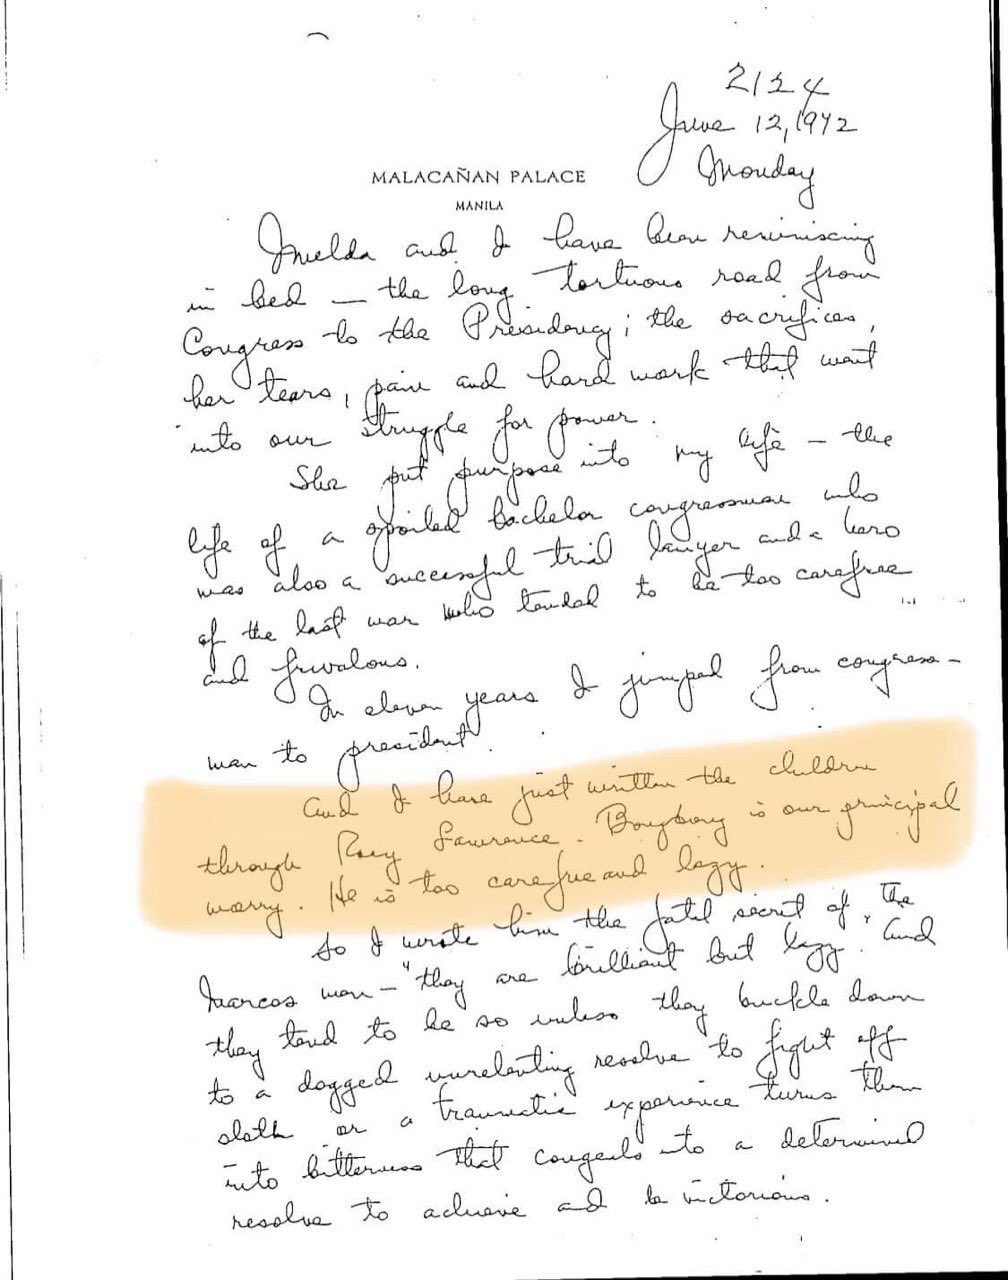 2124
June 12, 1972
Monday
MALACAÑAN PALACE
MANILA
Imelda and I have been reminiscing
in bed – the long tortuous road from
Congress to the Presidency; the sacrifices,
her tears, pain and hard work that went
into our struggle for power.
She put purpose into my life – the
life of a spoiled bachelor congressman who
was also a successful trial lawyer and a hero
of the last war who tended to be too carefree
and frivolous.
In eleven years I jumped from congress-
man to president.
And I have just written the children
through Rory Lawrence. Bongbong is our principal
worry. He is too carefree and lazy.
So I wrote him the fatal secret of the
Marcos men – "they are brilliant but lazy. And
they tend to be so unless they buckle down
to a dogged unrelenting resolve to fight off
sloth or a traumatic experience turns them
into bitterness that congeals into a determined
resolve to achieve and be victorious.